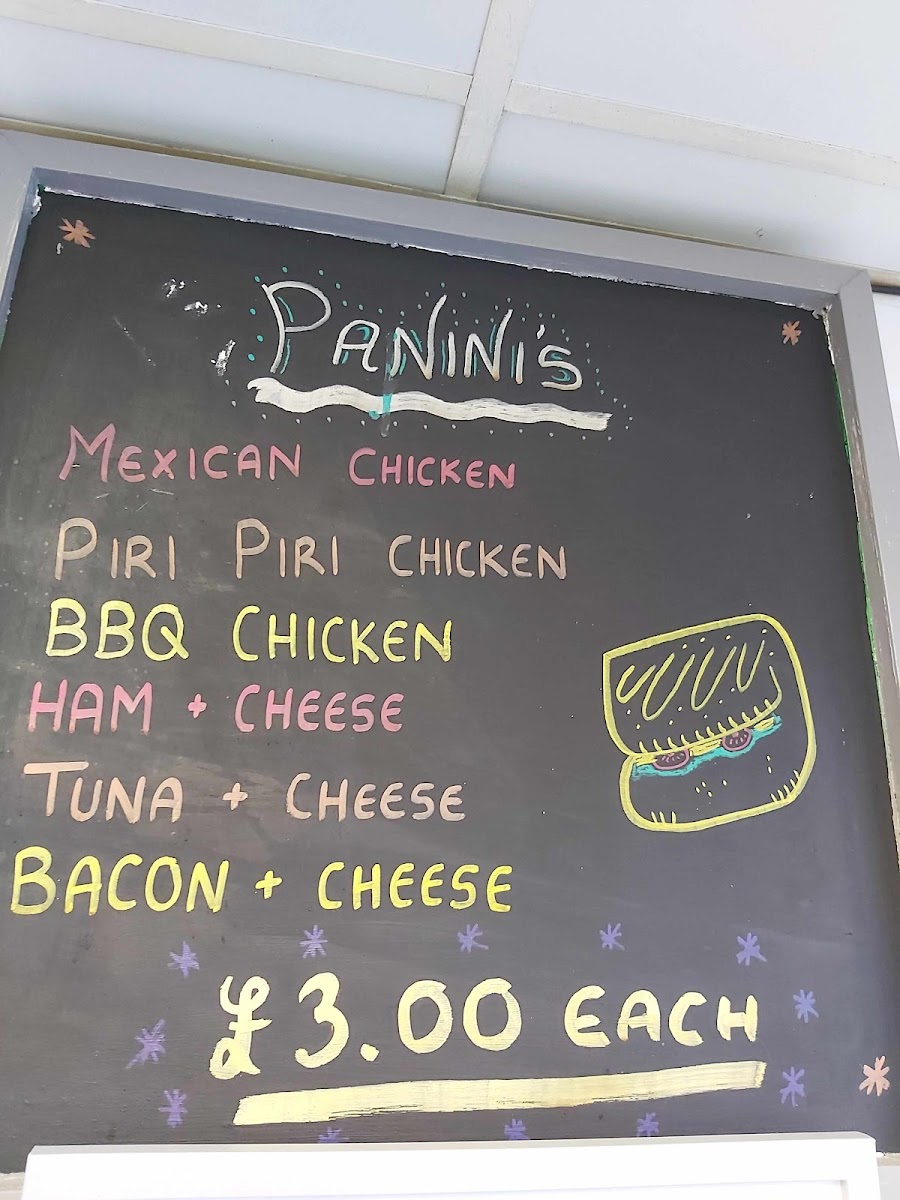 PANINI'S
MEXICAN CHICKEN
PIRI PIRI CHICKEN
BBQ CHICKEN
HAM + CHEESE
TUNA + CHEESE
BACON + CHEESE
£3.00 EACH